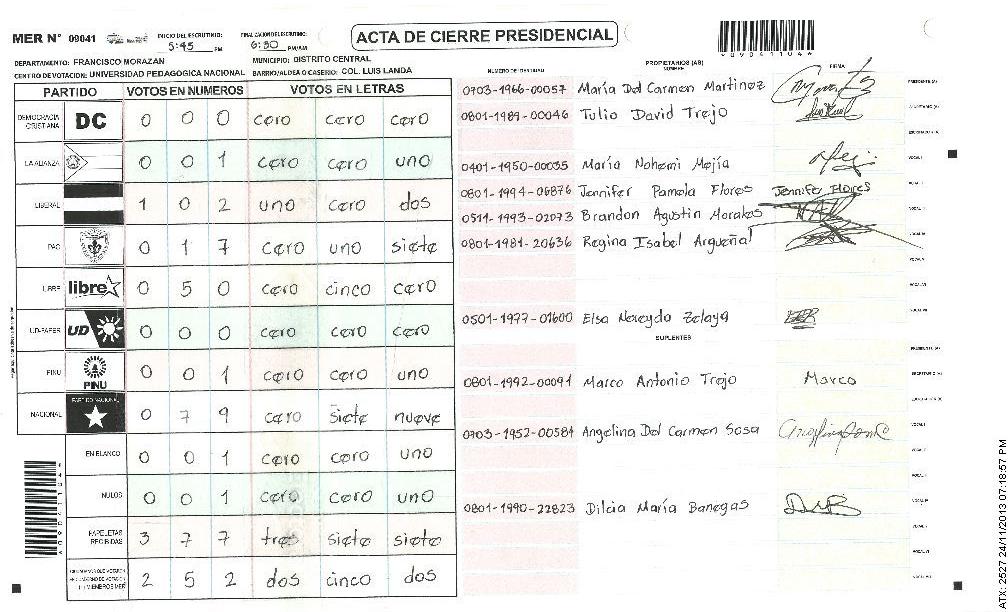 MER N° 09041
INICIO DEL ESCRUTINIO: 5:45 PM
FINALIZACION DEL ESCRUTINIO: 6:30 PM/AM
ACTA DE CIERRE PRESIDENCIAL
090411044
DEPARTAMENTO: FRANCISCO MORAZAN
MUNICIPIO: DISTRITO CENTRAL
CENTRO DE VOTACION: UNIVERSIDAD PEDAGOGICA NACIONAL BARRIO/ALDEA O CASERIO: COL. LUIS LANDA
PARTIDO VOTOS EN NUMEROS VOTOS EN LETRAS
DEMOCRACIA CRISTIANA DC 0 0 0 cero cero cero
LA ALIANZA 0 0 1 cero cero uno
LIBERAL 1 0 2 uno cero dos
PAC 0 1 7 cero uno siete
LIBRE libre 0 5 0 cero cinco cero
UD-FAPER UD 0 0 0 cero cero cero
PINU PINU 0 0 1 cero cero uno
NACIONAL PARTIDO NACIONAL 0 7 9 cero siete nueve
EN BLANCO 0 0 1 cero cero uno
NULOS 0 0 1 cero cero uno
PAPELETAS RECIBIDAS 3 7 7 tres siete siete
2 5 2 dos cinco dos
NUMERO DE IDENTIDAD PROPIETARIOS (AS) NOMBRE FIRMA
0703-1966-00057 María Del Carmen Martinez PRESIDENTE (A)
0801-1989-00046 Tulio David Trejo SECRETARIO (A)
ESCRUTADOR (A)
0401-1950-00035 María Nohemi Mejía VOCAL I
0801-1994-06876 Jennifer Pamela Flores Jennifer Flores
0511-1993-02073 Brandon Agustin Morales
0801-1981-20636 Regina Isabel Argueñal
0501-1977-01600 Elsa Nereyda Zelaya
SUPLENTES
PRESIDENTE (A)
0801-1992-00091 Marco Antonio Trejo Marco SECRETARIO (A)
0703-1952-00584 Angelina Del Carmen Sosa VOCAL I
0801-1990-22823 Dilcia María Banegas
ATX: 2527 24/11/2013 07:18:57 PM